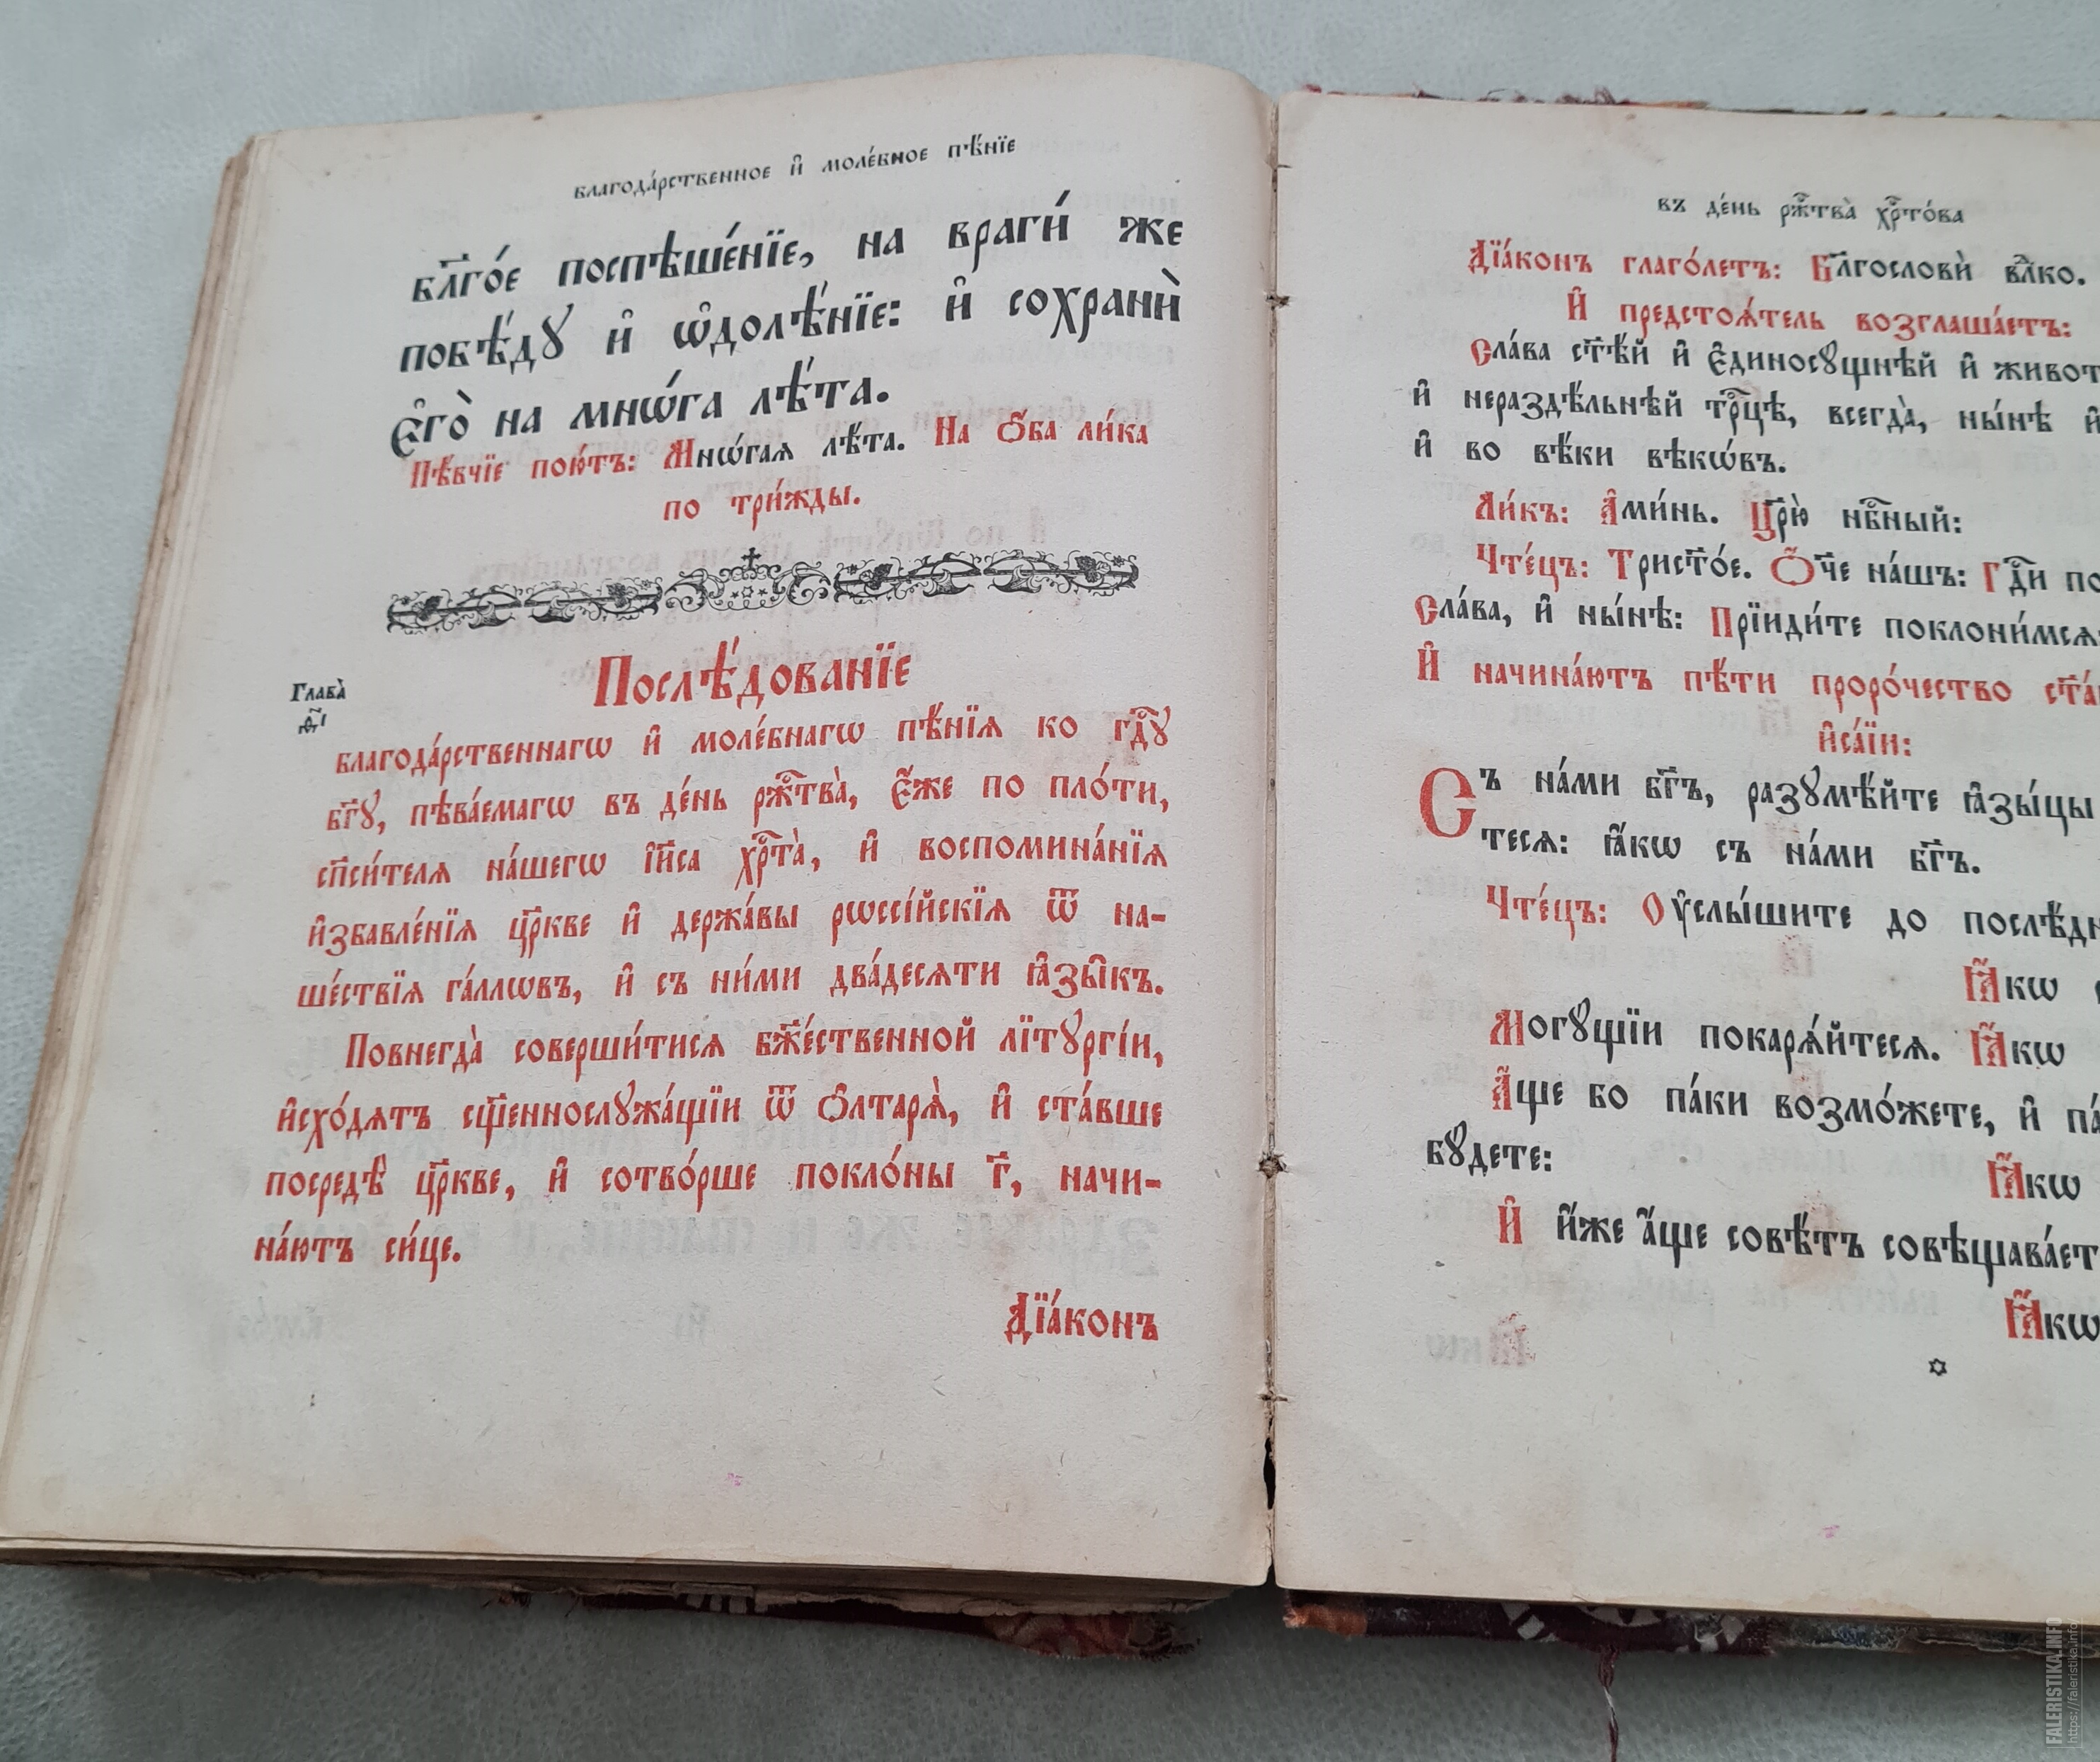 благода́рственное и҆ моле́бное пѣ́нїе
бл҃го́е поспѣше́нїе, на враги́ же
побѣ́дꙋ и҆ ѡ҆долѣ́нїе: и҆ сохранѝ
є҆го̀ на мнѡ́га лѣ́та.
Пѣ́вчїе пою́тъ: Мнѡ́гаѧ лѣ́та. На ѻ҆́ба ли́ка
по три́жды.
Послѣ́дованїе
Глава̀
д҃і
благода́рственнагѡ и҆ моле́бнагѡ пѣ́нїѧ ко гдⷭ҇ꙋ
бг҃ꙋ, пѣва́емагѡ въ де́нь ржⷭ҇тва̀, є҆́же по пло́ти,
сп҃си́телѧ на́шегѡ і҆и҃са хрⷭ҇та̀, и҆ воспомина́нїѧ
и҆збавле́нїѧ цр҃кве и҆ держа́вы рѡссі́йскїѧ ѿ на-
ше́ствїѧ га́ллѡвъ, и҆ съ ни́ми два́десѧти ꙗ҆зы̑къ.
Повнегда̀ соверши́тисѧ бж҃е́ственной лїтꙋргі́и,
и҆схо́дѧтъ сщ҃еннослꙋжа́щїи ѿ ѻ҆лтарѧ̀, и҆ ста́вше
посредѣ̀ цр҃кве, и҆ сотво́рше покло́ны г҃, начи-
на́ютъ си́це.
Дїа́конъ
въ де́нь ржⷭ҇тва̀ хрⷭ҇то́ва
Дїа́конъ глаго́летъ: Бл҃гословѝ влⷣко.
И҆ предстоѧ́тель возглаша́етъ:
Сла́ва ст҃ѣ́й и҆ є҆диносꙋ́щнѣй и҆ живот
и҆ нераздѣ́льнѣй трⷪ҇цѣ, всегда̀, ны́нѣ и҆
и҆ во вѣ́ки вѣкѡ́въ.
Ли́къ: А҆ми́нь. Цр҃ю̀ нбⷭ҇ный:
Чте́цъ: Трист҃о́е. Ѻ҆́ч҃е на́шъ: Гдⷭ҇и по
Сла́ва, и҆ ны́нѣ: Прїиди́те поклони́мсѧ
И҆ начина́ютъ пѣ́ти проро́чество
и҆са́їи:
Съ на́ми бг҃ъ, разꙋмѣ́йте ꙗ҆зы́цы
тесѧ: ꙗ҆́кѡ съ на́ми бг҃ъ.
Чте́цъ: Оу҆слы́шите до послѣ́дн
Ꙗ҆́кѡ с
Могꙋ́щїи покарѧ́йтесѧ. Ꙗ҆́кѡ
А҆́ще бо па́ки возмо́жете, и҆ па́
бꙋ́дете:
Ꙗ҆́кѡ
И҆ и҆́же а҆́ще совѣ́тъ совѣщава́ет
Ꙗ҆́кѡ
FALERISTIKA.INFO
https://faleristika.info/